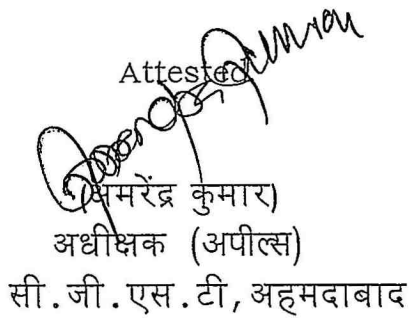 Attested
(अमरेंद्र कुमार)
अधीक्षक (अपील्स)
सी.जी.एस.टी,अहमदाबाद